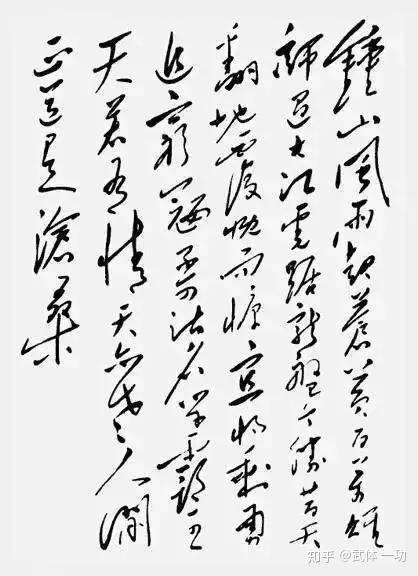 鐘山風雨起蒼黄百万雄
師過大江虎踞龍盤今勝昔天
翻地覆慨而慷宜将剩勇
追窮寇不可沽名学霸王
天若有情天亦老人間
正道是滄桑
知乎 @武体一功